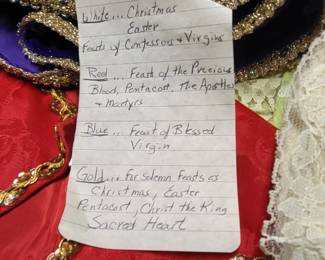 White... Christmas
Easter
Feasts of Confessors & Virgins
Red... Feast of the Precious
Blood, Pentacost, The Apostles
& Martyrs
Blue... Feast of Blessed
Virgin
Gold... For Solemn Feasts as
Christmas, Easter
Pentacost, Christ the King
Sacred Heart